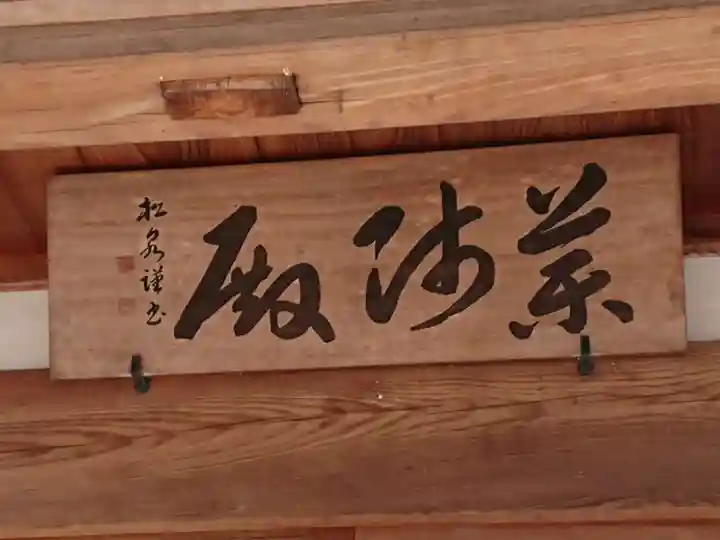 薬師殿
松泉謹書